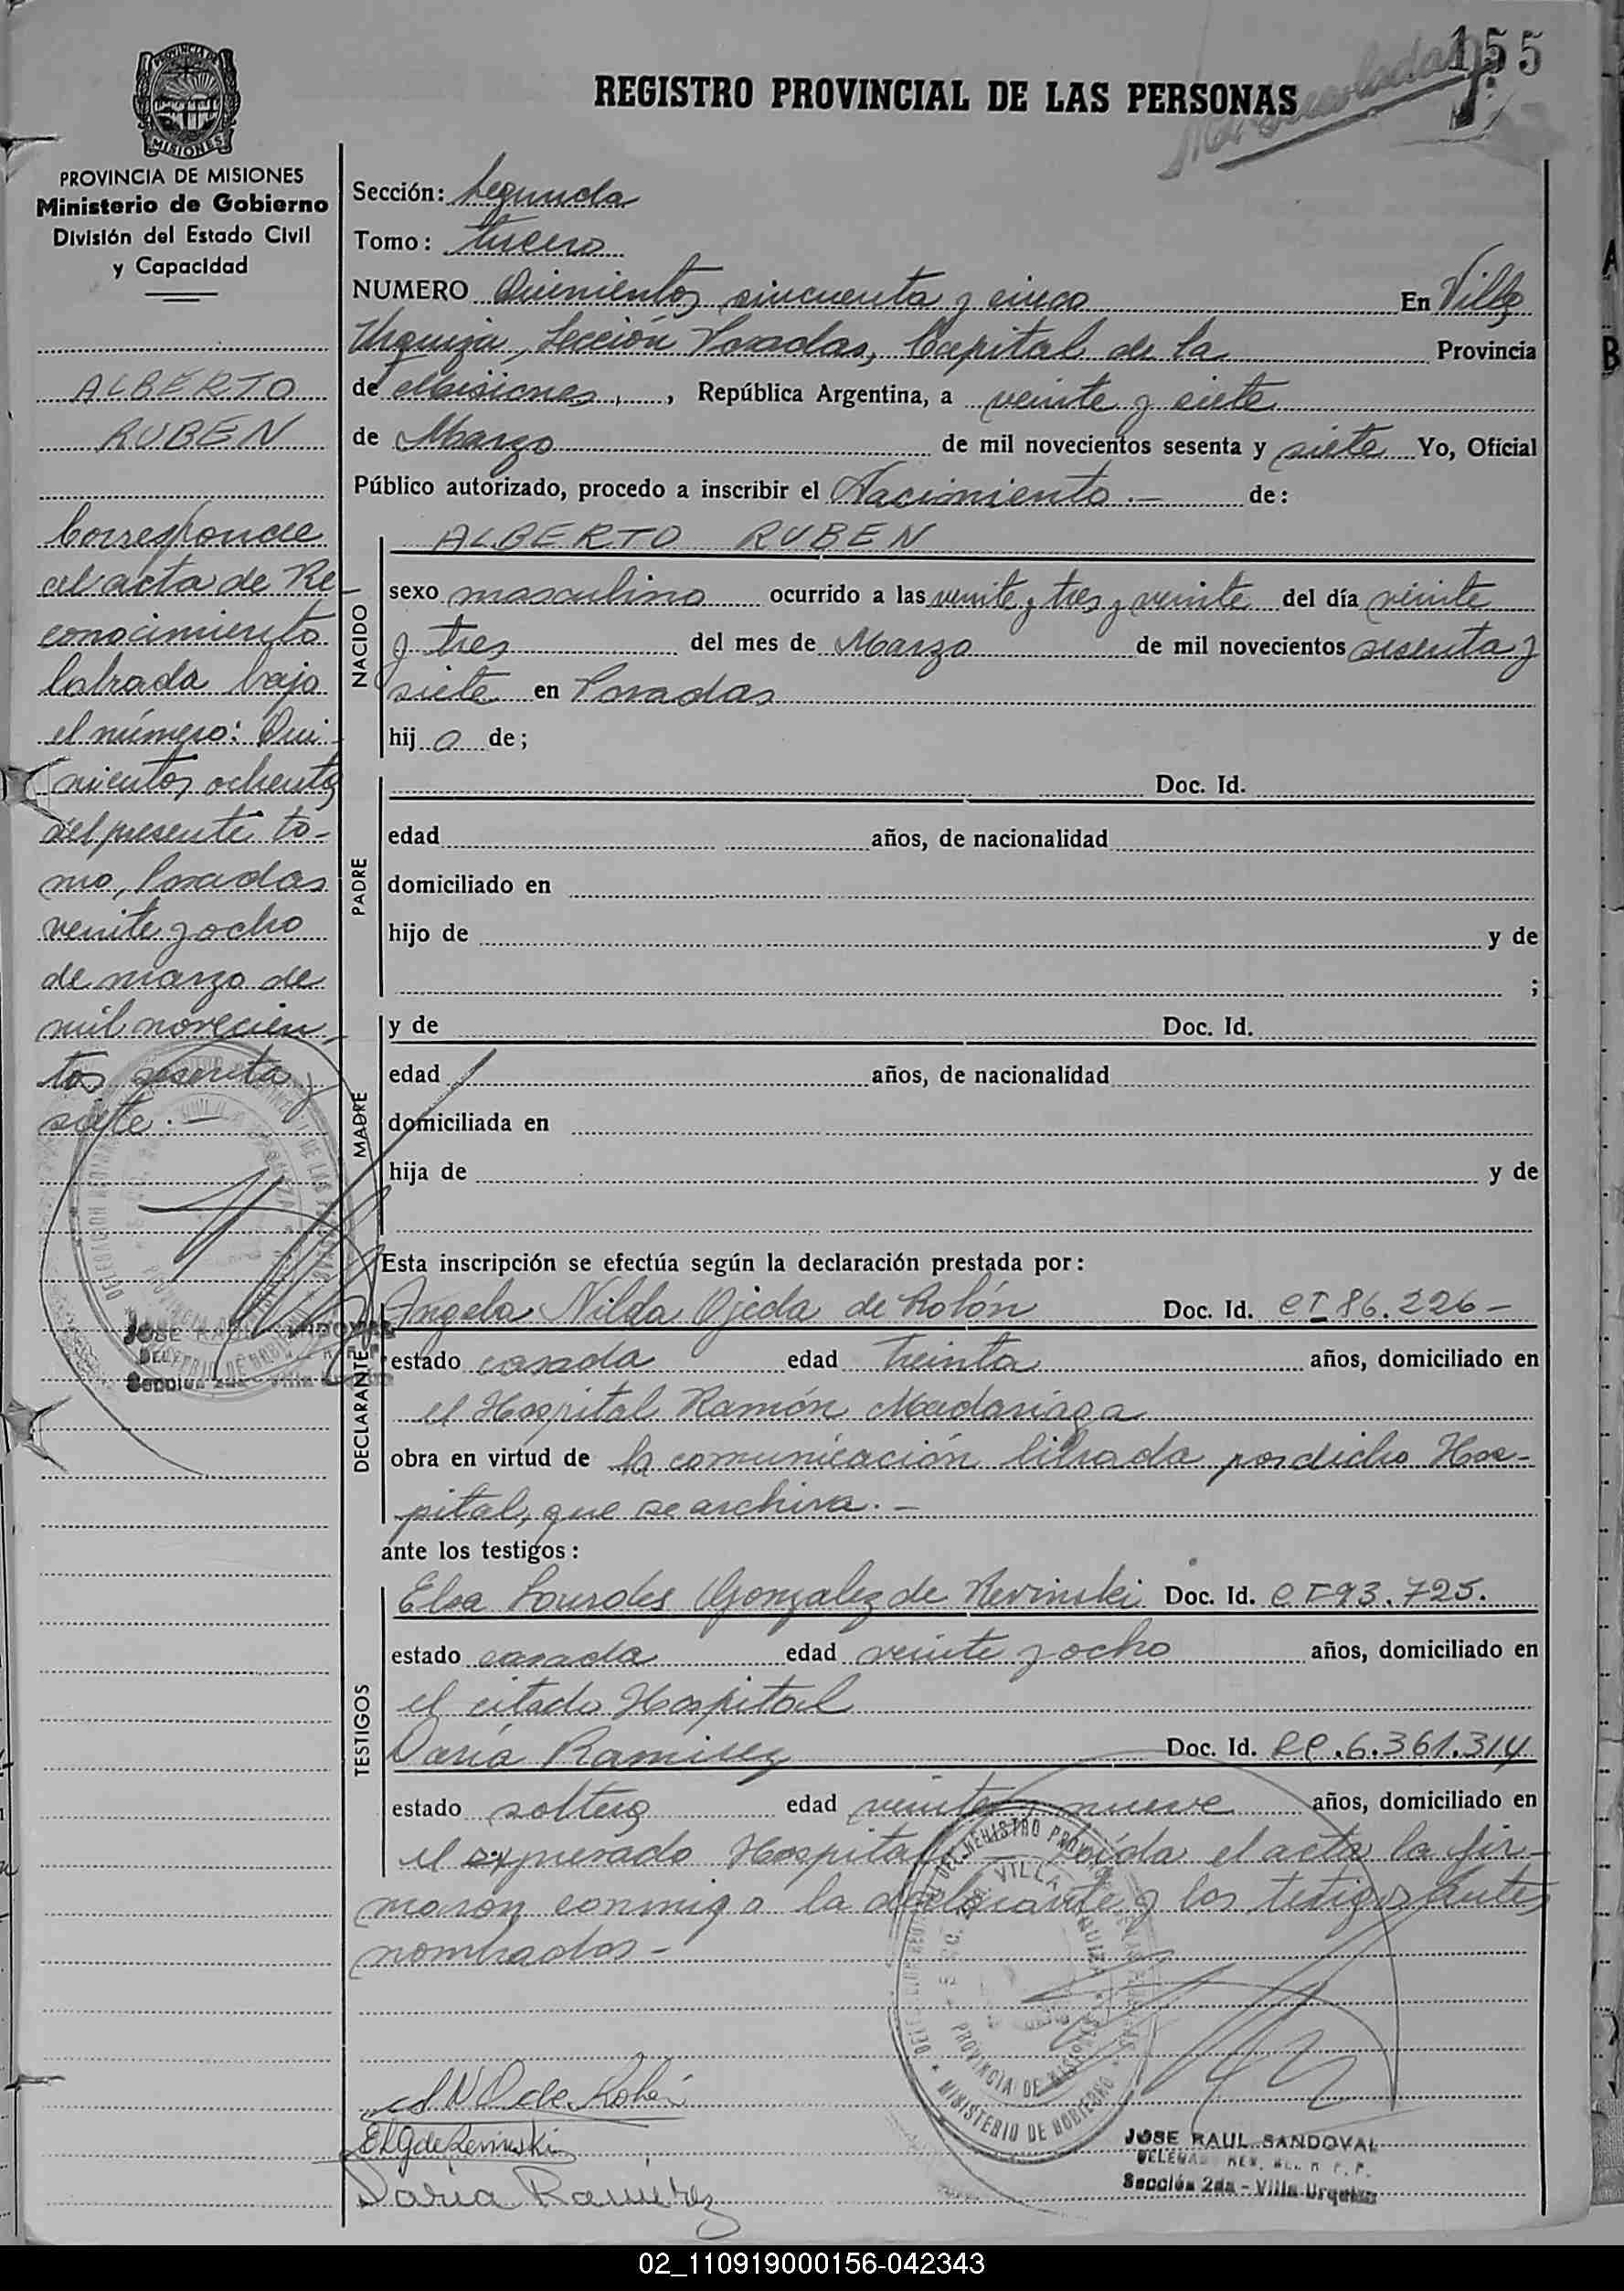 155
REGISTRO PROVINCIAL DE LAS PERSONAS
MISIONES
PROVINCIA DE MISIONES
Ministerio de Gobierno
División del Estado Civil
y Capacidad
ALBERTO
RUBEN
Corresponde
al acta de Re-
conocimiento
labrada bajo
el número: Qui-
nientos ochenta
del presente to-
mo, Posadas
veinte y ocho
de marzo de
mil novecien-
tos sesenta y
siete.-
JOSE RAUL SANDOVAL
Sección 2da - Villa Urquiza
Sección: Segunda
Tomo: tercero
NUMERO Quinientos cincuenta y cinco En Villa
Urquiza, Sección Posadas, Capital de la Provincia
de Misiones, República Argentina, a veinte y siete
de Marzo de mil novecientos sesenta y siete Yo, Oficial
Público autorizado, procedo a inscribir el Nacimiento.- de:
NACIDO
ALBERTO RUBEN
sexo masculino ocurrido a las veinte y tres y veinte del día veinte
y tres del mes de Marzo de mil novecientos sesenta y
siete en Posadas
hijo de;
PADRE
Doc. Id.
edad años, de nacionalidad
domiciliado en
hijo de y de
;
MADRE
y de Doc. Id.
edad años, de nacionalidad
domiciliada en
hija de y de
Esta inscripción se efectúa según la declaración prestada por:
DECLARANTE
Angela Nilda Ojeda de Rolón Doc. Id. CI 86.226-
estado casada edad treinta años, domiciliado en
el Hospital Ramón Madariaga
obra en virtud de la comunicación librada por dicho Hos-
pital, que se archiva.-
ante los testigos:
TESTIGOS
Elsa Lourdes Gonzalez de Kevinski Doc. Id. CI 93.725.
estado casada edad veinte y ocho años, domiciliado en
el citado Hospital
Daría Ramirez Doc. Id. LC.6.361.314
estado soltera edad veinte y nueve años, domiciliado en
el expresado Hospital.- Leída el acta la fir-
maron conmigo la declarante y los testigos antes
nombrados-
A N O de Rolón
E L G de Kevinski
Daria Ramirez
PROVINCIA DE MISIONES
MINISTERIO DE GOBIERNO
JOSE RAUL SANDOVAL
Sección 2da - Villa Urquiza
02_110919000156-042343